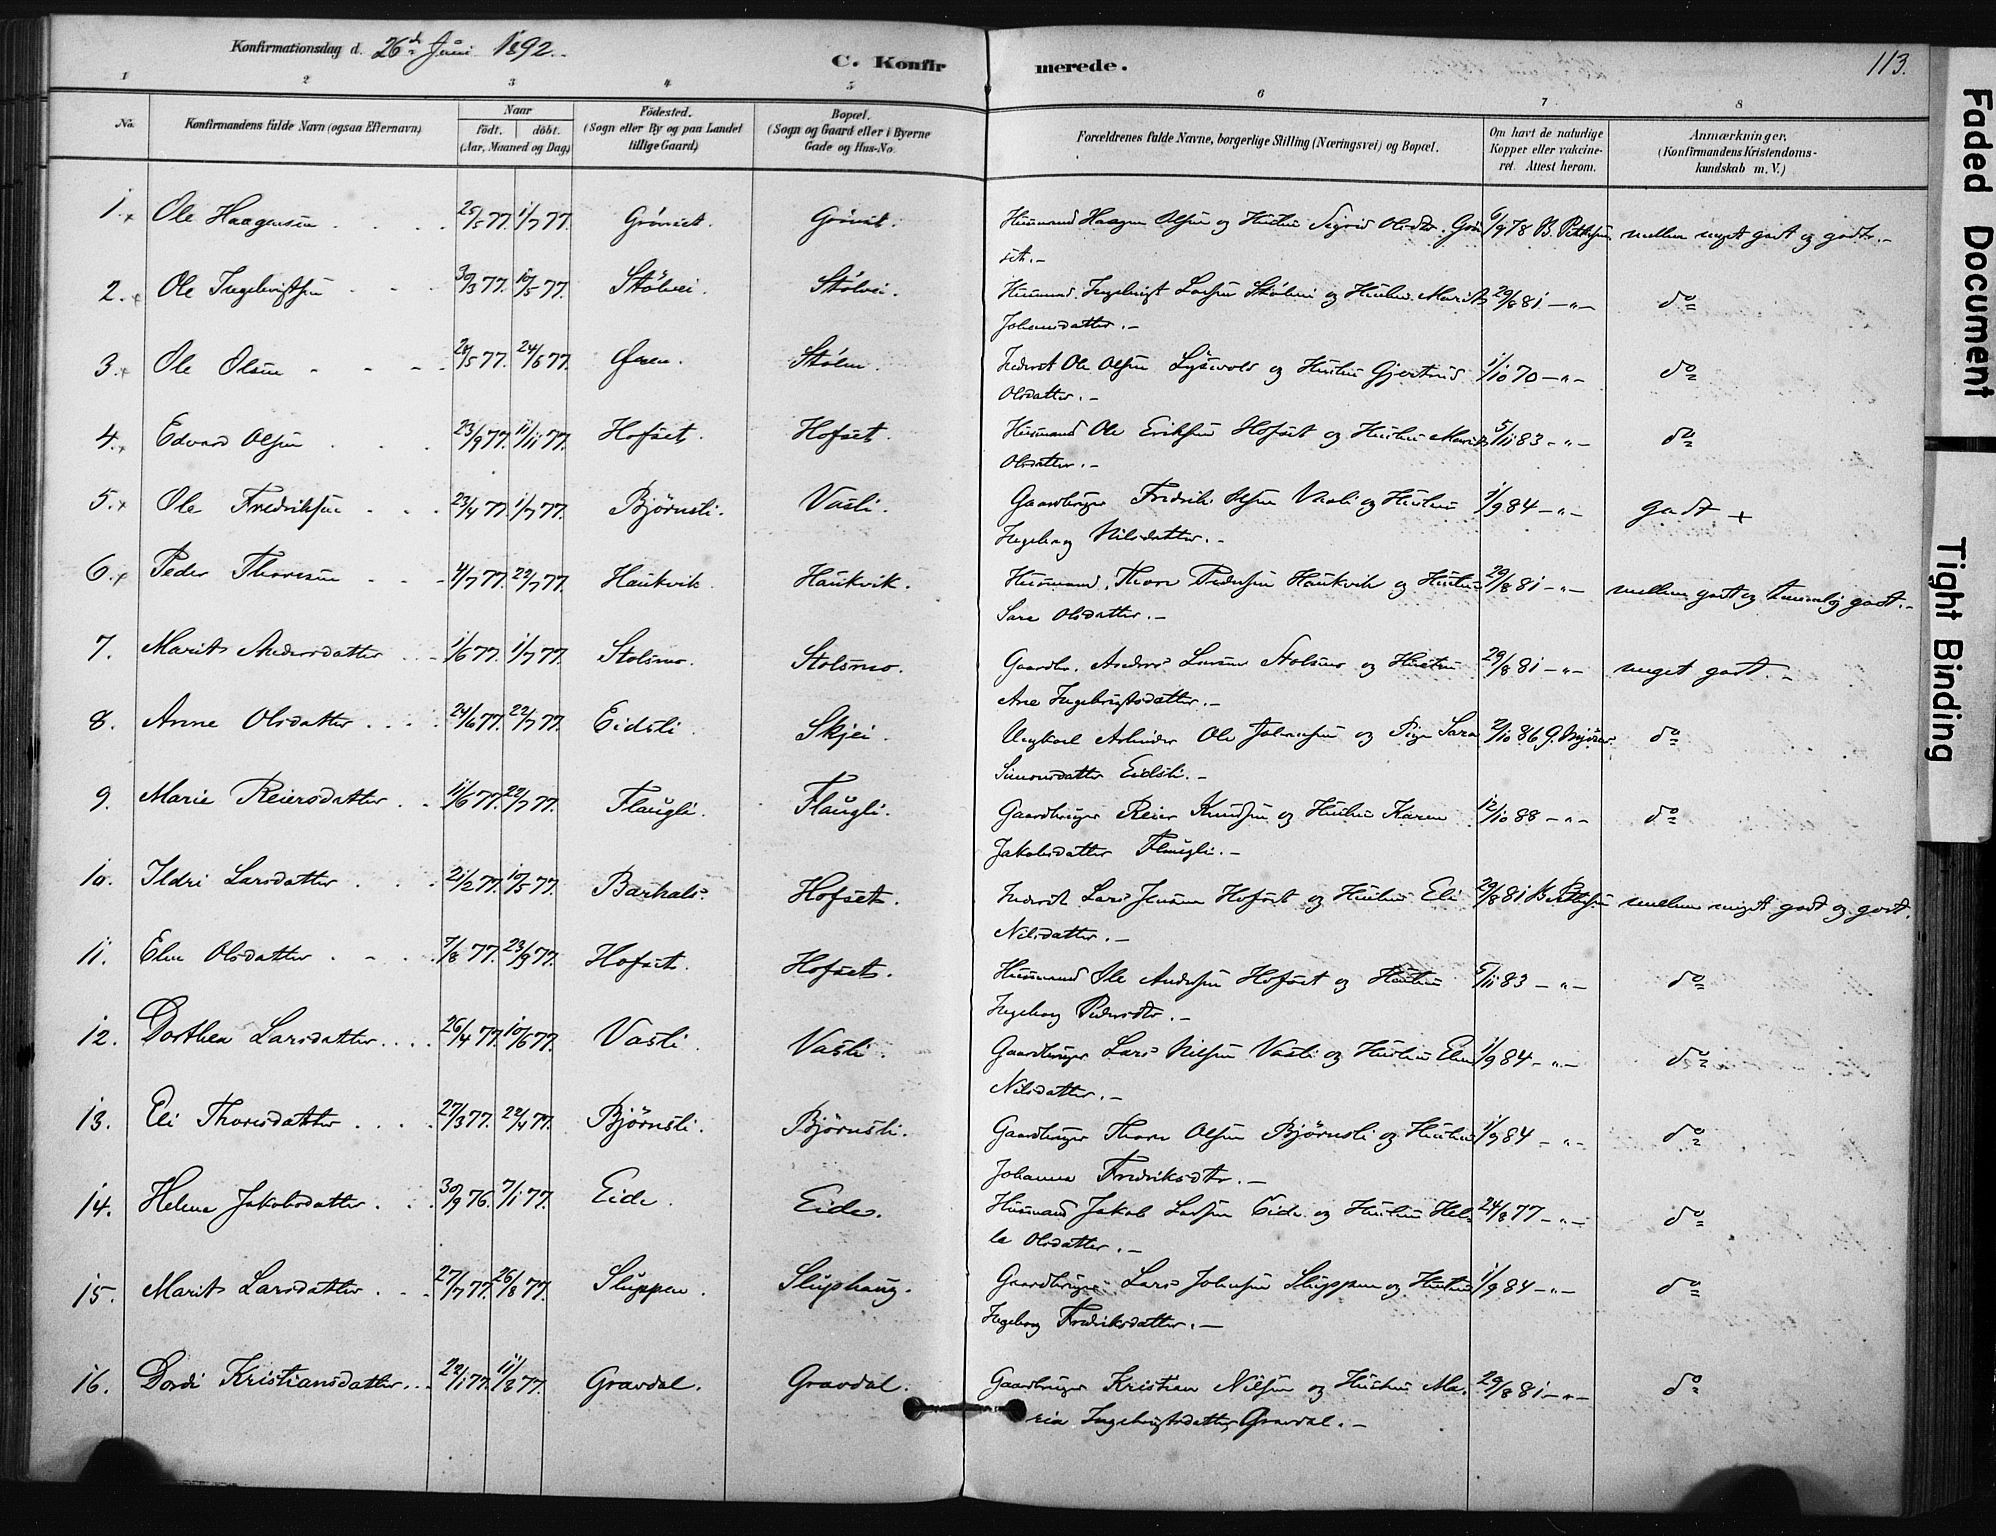 Konfirmationsdag d. 26d Juni 1892.
C. Konfirmerede.
113.
1 2 3 4 5 6 7 8
No. Konfirmandens fulde Navn (ogsaa Efternavn) Naar födt. döbt. (Aar, Maaned og Dag) Födested. (Sogn eller By og paa Landet tillige Gaard) Bopæl. (Sogn og Gaard eller i Byerne Gade og Hus-No. Forældrenes fulde Navne, borgerlige Stilling (Næringsvei) og Bopæl. Om havt de naturlige Kopper eller vakcineret. Attest herom. Anmærkninger. (Konfirmandens Kristendomskundskab m. V.)
1. x Ole Haagensen 25/5 77. 1/7 77. Grönset. Grönset. Husmand Haagen Olsen og Hustru Sigrid Olsdtr. Grön 6/9 78 mellem meget godt og godt.-
set.-
2. x Ole Ingebrigtsen 30/3 77. 10/5 77. Stölvei. Stölvei. Husmand Ingebrigt Larsen Stölvei og Hustru Marit 29/8 81 -"- do
Johansdatter.-
3. x Ole Olsen 24/6 77. Stölen. Inderst Ole Olsen Lysvold og Hustru Gjertrud 1/10 70 -"- do
Olsdatter.-
4. x Edvard Olsen 23/9 77. 11/11 77. Hofset. Hofset. Husmand Ole Eriksen Hofset og Hustru Marit 5/11 83 -"- do
Olsdatter.-
5. x Ole Fredriksen 23/4 77. 1/7 77. Björnsli. Vasli. Gaardbruger Fredrik Olsen Vasli og Hustru 1/9 84 -"- godt +
Ingeborg Nilsdatter.-
6. x Peder Thoresen 4/7 77. 22/7 77. Haukvik. Haukvik. Husmand Thore Pedersen Haukvik og Hustru 29/8 81 -"- mellem godt og temmelig godt.-
Sara Olsdatter.-
7. Marit Andersdatter 1/6 77. 1/7 77. Stolsmo. Stolsmo. Gaardbr. Anders Larsen Stolsmo og Hustru 29/8 81 -"- meget godt.-
Ane Ingebrigtsdatter.-
8. Anne Olsdatter 24/6 77. 22/7 77. Eidsli. Skjei. Ungkarl Arbeider Ole Johnsen og Pige Sara 2/10 86 do
Simonsdatter Eidsli.-
9. Marie Reiersdatter 11/6 77. 22/7 77. Flaugli. Flaugli. Gaardbruger Reier Knudsen og Hustru Karen 12/10 88 -"- do
Jakobsdatter Flaugli.-
10. Ildri Larsdatter 21/2 77. 10/5 77. Barhals. Hofset. Inderst Lars Jensen Hofset og Hustru Eli 29/8 81 mellem meget godt og godt.
Nilsdatter.-
11. Elen Olsdatter 7/8 77. 23/9 77. Hofset. Hofset. Husmand Ole Andersen Hofset og Hustru 5/11 83 -"- do
Ingeborg Pedersdtr.-
12. Dorthea Larsdatter 26/4 77. 10/6 77. Vasli. Vasli. Gaardbruger Lars Nilsen Vasli og Hustru Elen 1/9 84 -"- do
Nilsdatter.-
13. Eli Thoresdatter 27/3 77. 22/4 77. Björnsli. Björnsli. Gaardbruger Thore Olsen Björnsli og Hustru 1/9 84 -"- do
Johanna Fredriksdtr.-
14. Helena Jakobsdatter 30/9 76. 7/1 77. Eide. Eide. Husmand Jakob Larsen Eide og Hustru Hel- 24/8 77 -"- do
le Olsdatter.-
15. Marit Larsdatter 27/7 77. 26/8 77. Sluppen. Sluphaug. Gaardbruger Lars Johnsen Sluppen og Hustru 1/9 84 -"- do
Ingeborg Fredriksdatter.-
16. Dordi Kristiansdatter 22/1 77. 11/3 77. Gravdal. Gravdal. Gaardbruger Kristian Nilsen og Hustru Ma- 29/8 81 -"- do
ria Ingebrigtsdatter Gravdal.-
Faded Document
Tight Binding